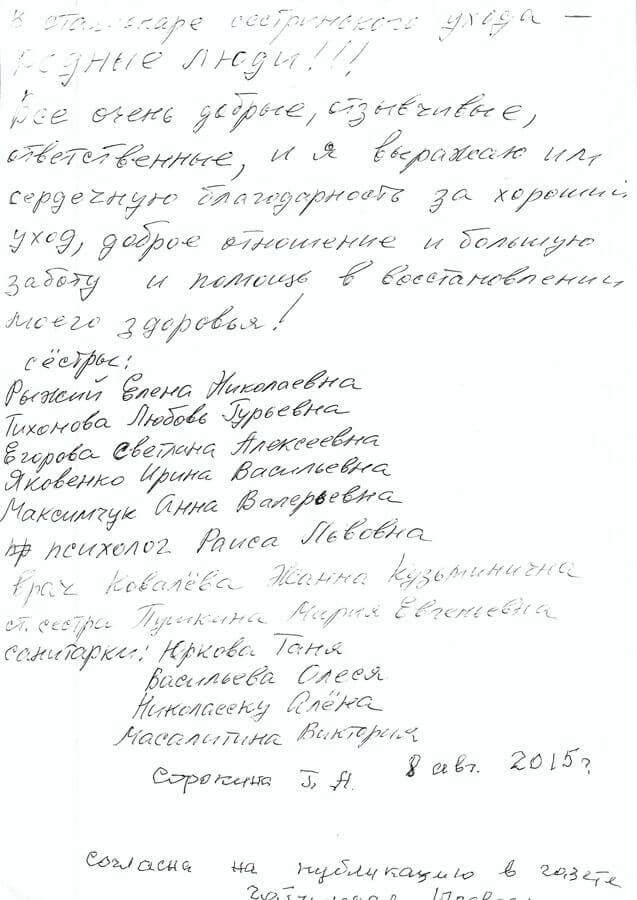 В стационаре сестринского ухода —
родные люди!!!
Все очень добрые, отзывчивые,
ответственные, и я выражаю им
сердечную благодарность за хороший
уход, доброе отношение и большую
заботу и помощь в восстановлении
моего здоровья!
сёстры:
Рыжий Елена Николаевна
Тихонова Любовь Гурьевна
Егорова Светлана Алексеевна
Яковенко Ирина Васильевна
Максимчук Анна Валерьевна
психолог Раиса Львовна
врач Ковалёва Жанна Кузьминична
ст. сестра Пушкина Мария Евгеньевна
санитарки: Юркова Таня
Васильева Олеся
Николаеску Алёна
Масалитина Виктория
8 авг. 2015г.
Сорокина Г. А.
согласна на публикацию в газете